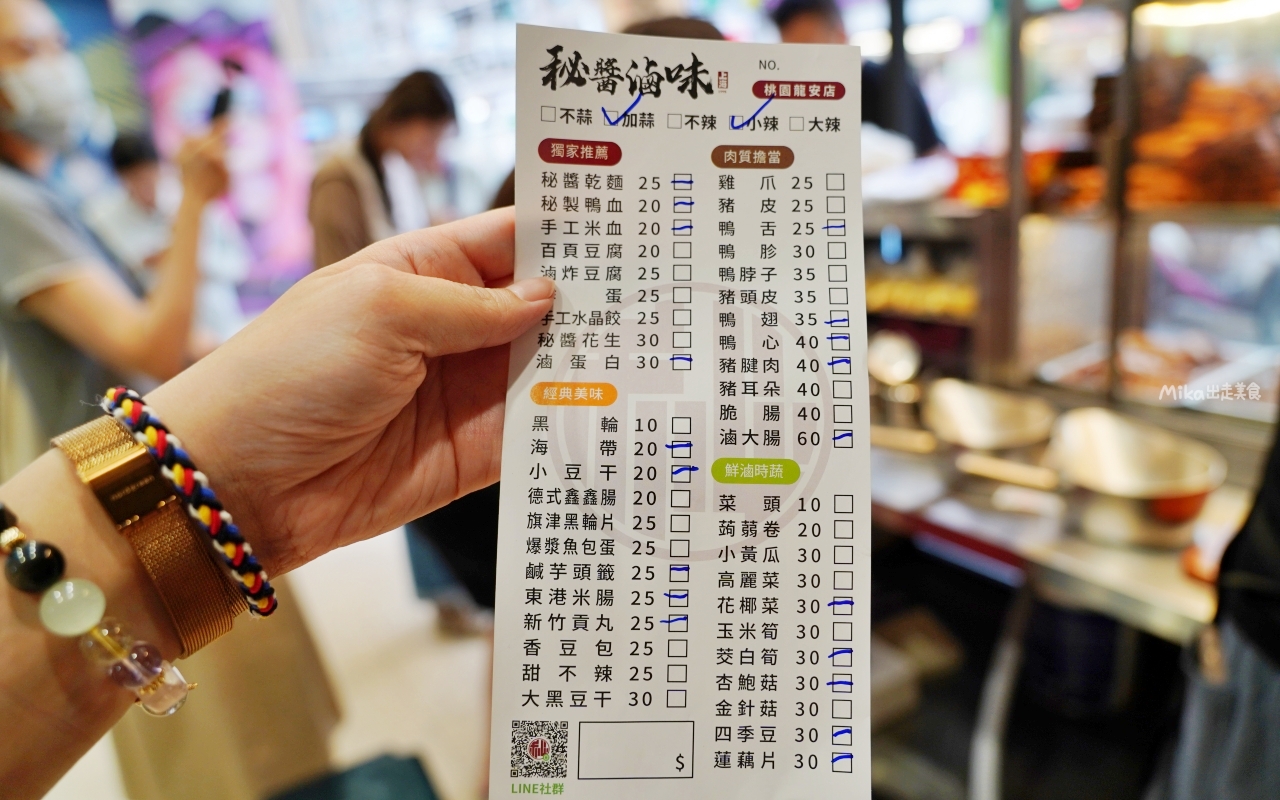 秘醬滷味 上海
NO.
桃園龍安店
□不蒜 □加蒜 □不辣 □小辣 □大辣
獨家推薦
秘醬乾麵 25
秘製鴨血 20
手工米血 20
百頁豆腐 20
滷炸豆腐 25
蛋 25
手工水晶餃 25
秘醬花生 30
滷蛋白 30
經典美味
黑輪 10
海帶 20
小豆干 20
德式鑫鑫腸 20
旗津黑輪片 25
爆漿魚包蛋 25
鹹芋頭籤 25
東港米腸 25
新竹貢丸 25
香豆包 25
甜不辣 25
大黑豆干 30
$
LINE社群
肉質擔當
雞爪 25
豬皮 25
鴨舌 25
鴨胗 30
鴨脖子 35
豬頭皮 35
鴨翅 35
鴨心 40
豬腱肉 40
豬耳朵 40
脆腸 40
滷大腸 60
鮮滷時蔬
菜頭 10
蒟蒻卷 20
小黃瓜 30
高麗菜 30
花椰菜 30
玉米筍 30
茭白筍 30
杏鮑菇 30
金針菇 30
四季豆 30
蓮藕片 30
Mika出走美食